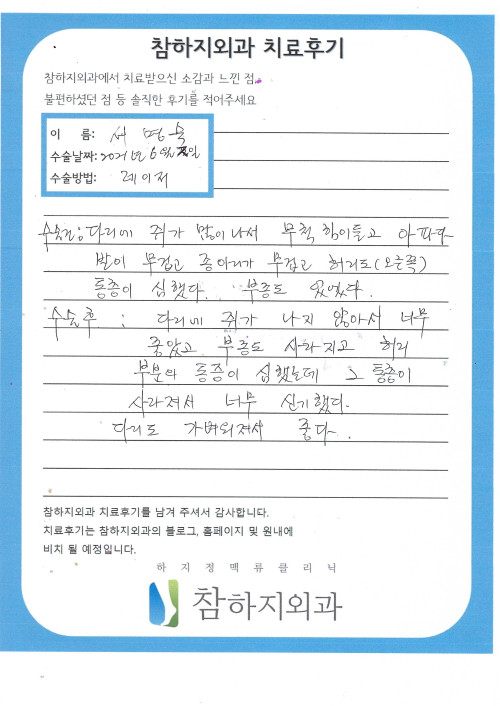 참하지외과 치료후기
참하지외과에서 치료받으신 소감과 느낀 점,
불편하셨던 점 등 솔직한 후기를 적어주세요
이 름: 서 명숙
수술날짜: 2021년 6월 일
수술방법: 레이저
수술전: 다리에 쥐가 많이나서 무척 힘이들고 아파다
발이 무겁고 종아리가 무겁고 허리도(오른쪽)
통증이 심했다. 부종도 있었다.
수술후 : 다리에 쥐가 나지 않아서 너무
좋았고 부종도 사라지고 허리
부분의 통증이 심했는데 그 통증이
사라져서 너무 신기했다.
다리도 가벼워져서 좋다.
참하지외과 치료후기를 남겨 주셔서 감사합니다.
치료후기는 참하지외과의 블로그, 홈페이지 및 원내에
비치 될 예정입니다.
하지정맥류클리닉
참하지외과